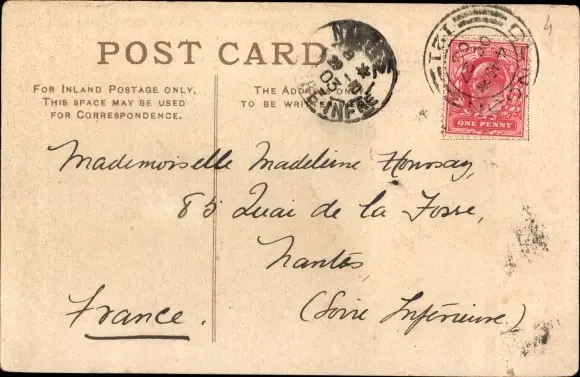 POST CARD
FOR INLAND POSTAGE ONLY,
THIS SPACE MAY BE USED
FOR CORRESPONDENCE.
THE ADD
TO BE WRI
ONE PENNY
4
Mademoiselle Madeleine
85 Quai de la Fosse,
Nantes,
(Loire Inférieure.)
France.